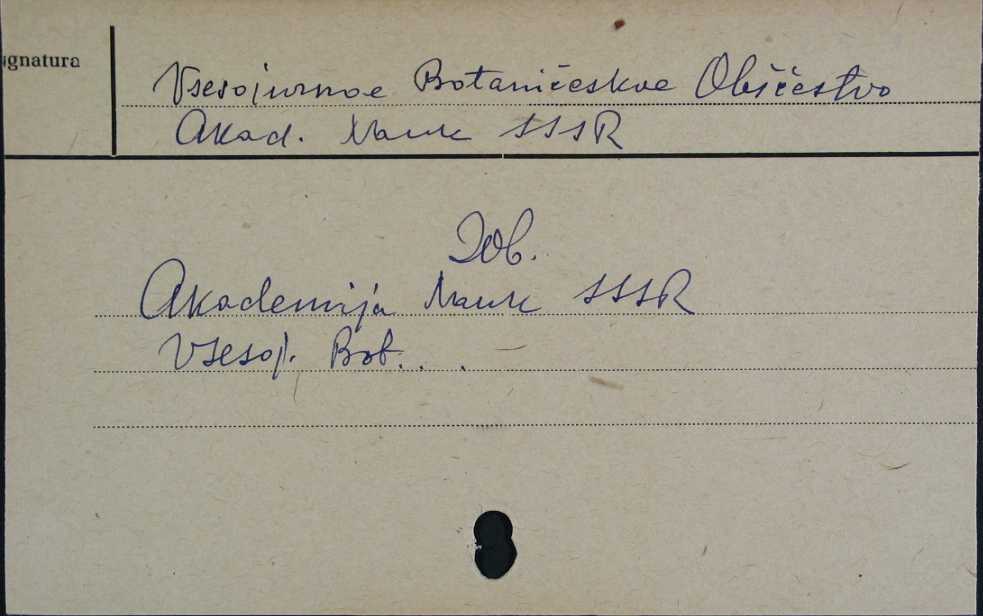 ignatura
Vsesojuznoe Botaničeskoe Obščestvo
Akad. Nauk SSSR
Zob.
Akademija Nauk SSSR
Vsesoj. Bot. . .